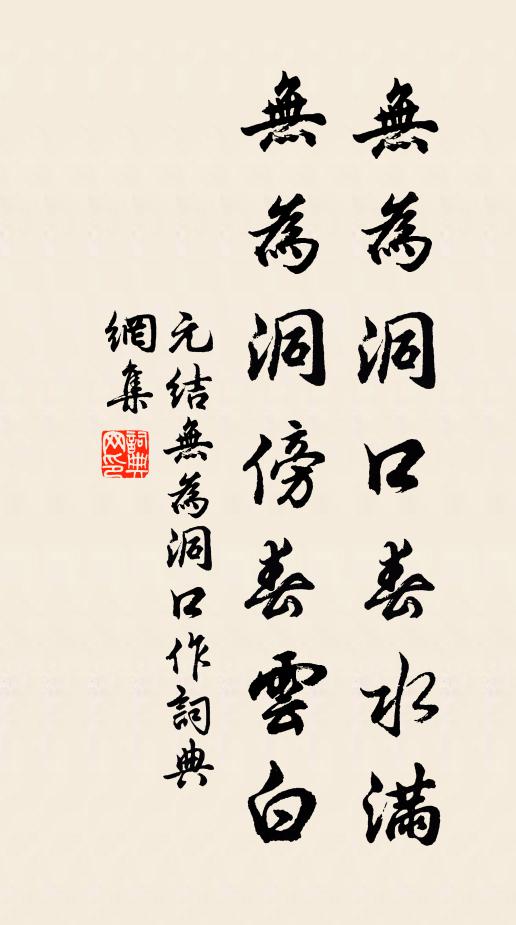 無為洞口春水滿
無為洞傍春雲白
元結無為洞口作詞典
網集
詞典網印